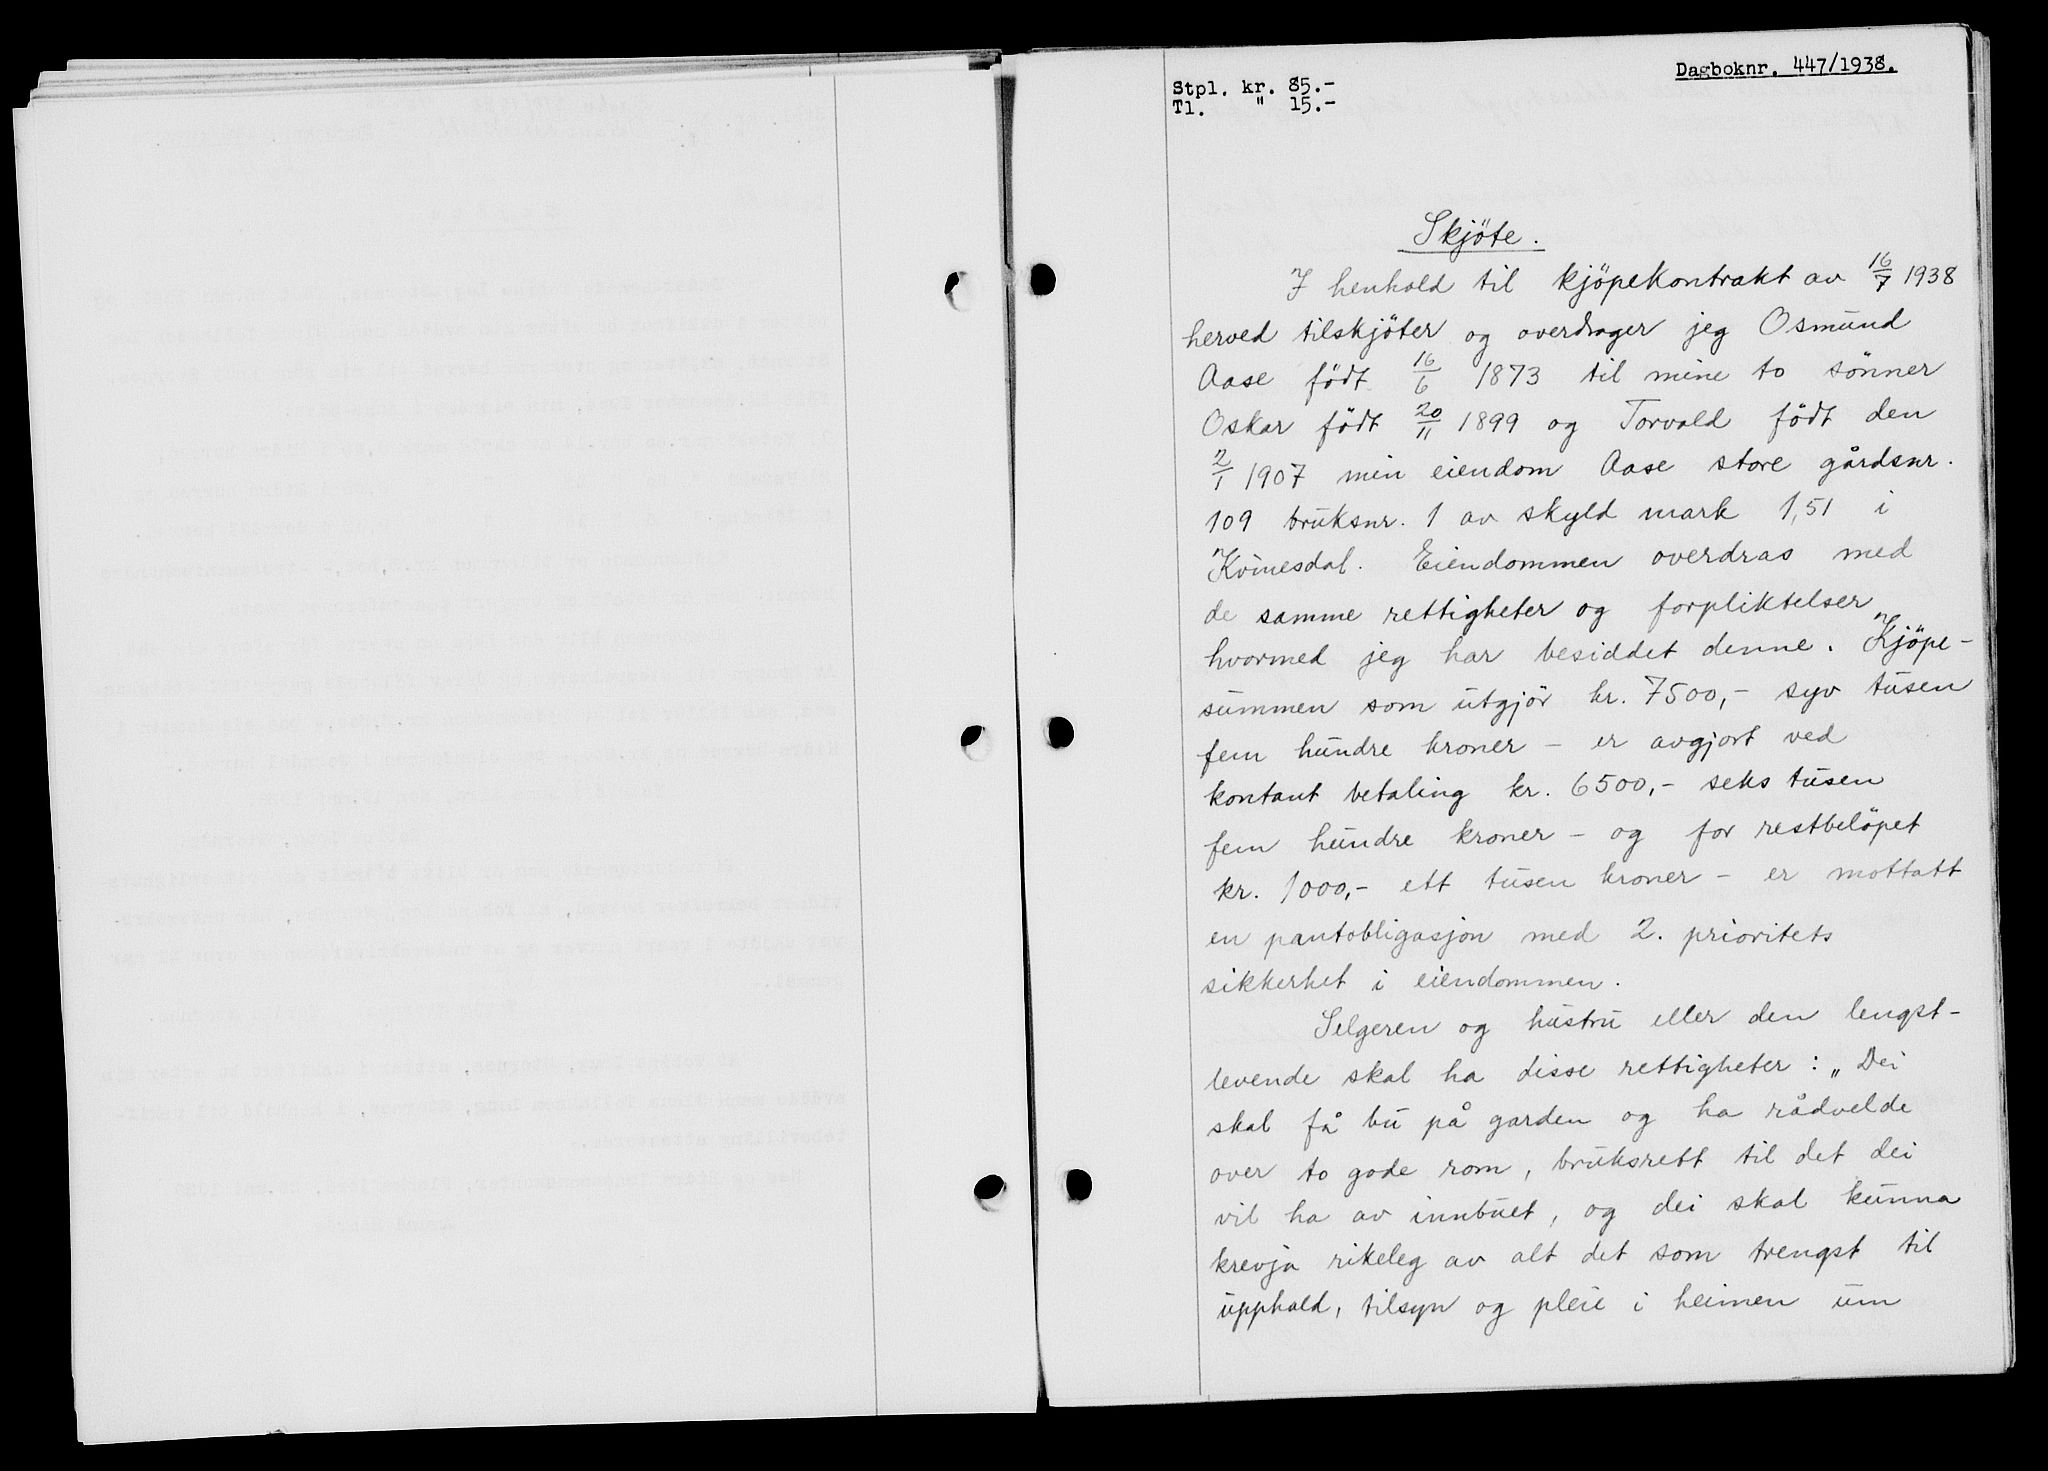 Dagboknr. 447/1938.
Stpl. kr. 85.-
Tl. " 15.-
Skjöte.
I henhold til kjöpekontrakt av 16/7 1938
herved tilskjöter og overdrager jeg Osmund
Aase födt 16/6 1873 til mine to sønner
Oskar födt 20/11 1899 og Torvald födt den
2/1 1907 min eiendom Aase store gårdsnr.
109 bruksnr. 1 av skyld mark 1,51 i
Kvinesdal. Eiendommen overdras med
de samme rettigheter og forpliktelser
hvormed jeg har besiddet denne. Kjöpe-
summen som utgjör kr. 7500,- syv tusen
fem hundre kroner - er avgjort ved
kontant betaling kr. 6500,- seks tusen
fem hundre kroner - og for restbelöpet
kr. 1000,- ett tusen kroner - er mottatt
en pantobligasjon med 2. prioritets
sikkerhet i eiendommen.
Selgeren og hustru eller den lengst-
levende skal ha disse rettigheter: „Dei
skal få bu på garden og ha rådvelde
over to gode rom, bruksrett til det dei
vil ha av innbuet, og dei skal kunna
krevja rikeleg av alt det som trengst til
upphald, tilsyn og pleie i heimen um